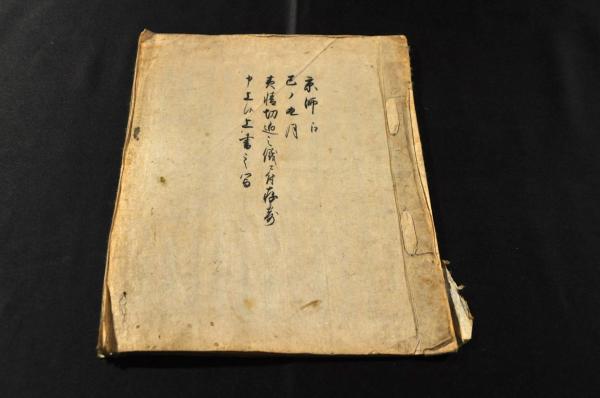 京師
巳ノ月
夷情切迫之儀ニ付存寄
申上候上書之写